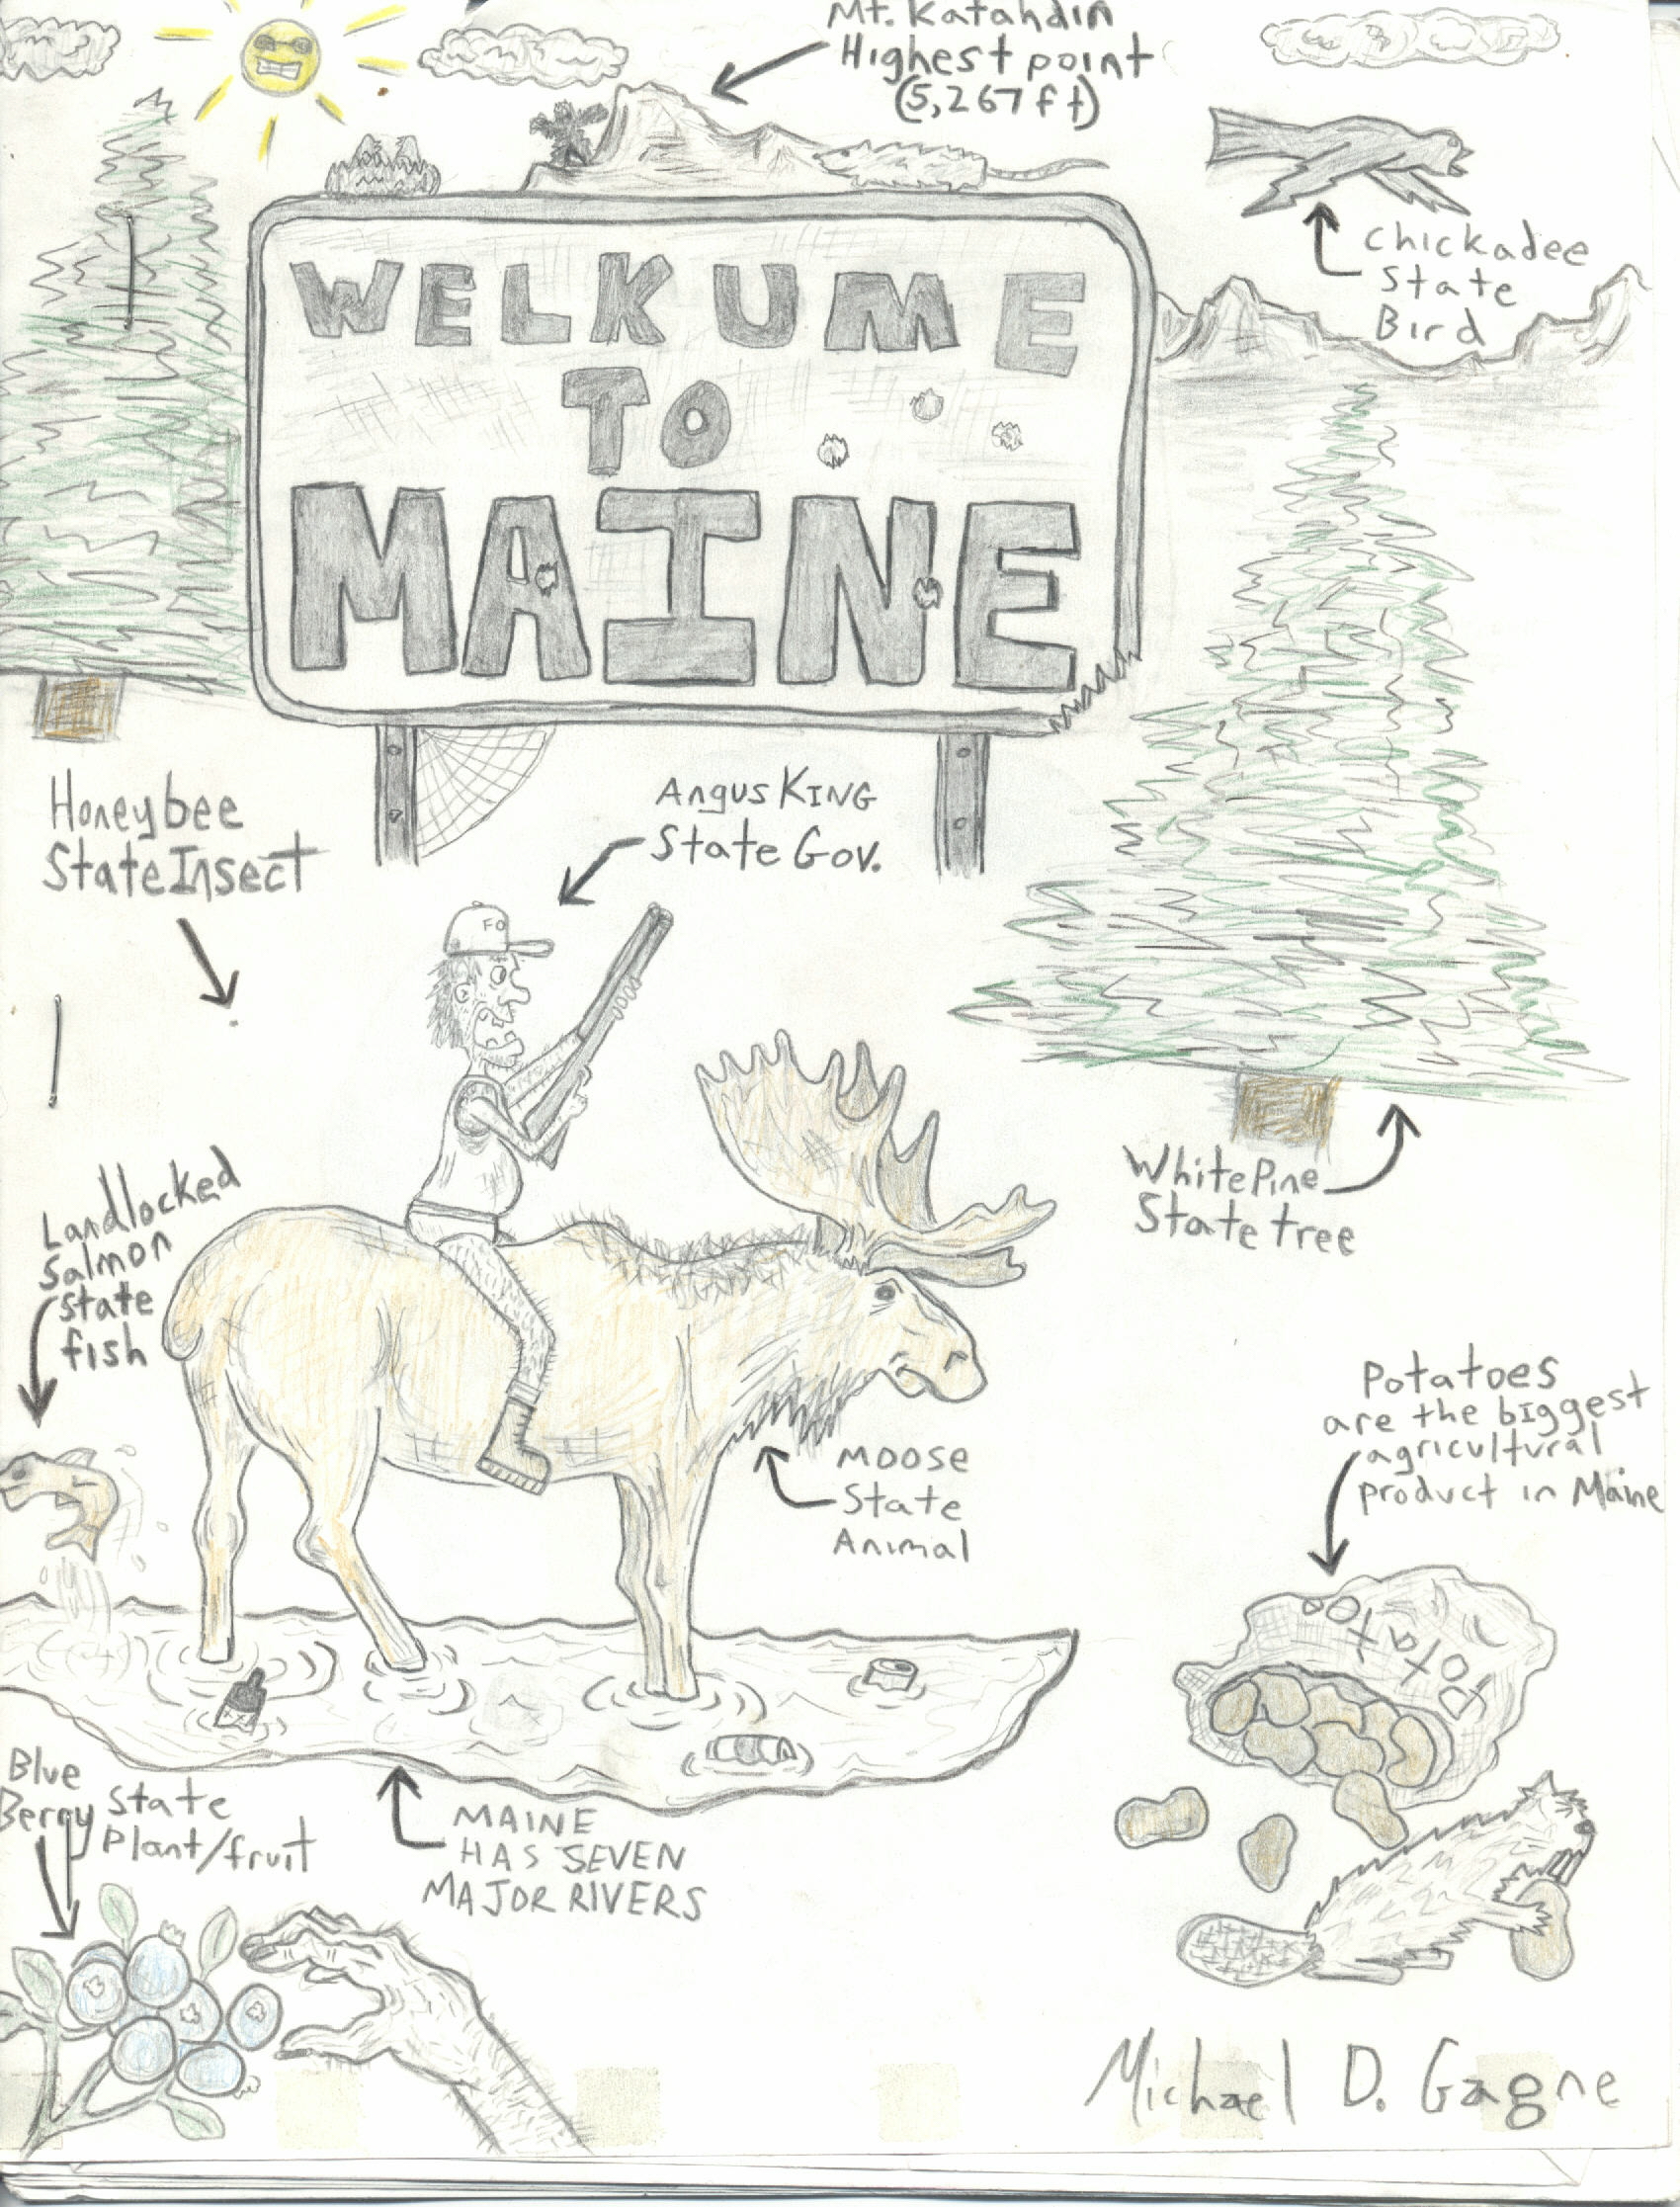 Mt. Katahdin
Highest point
(5,267 ft)
WELKUME
TO
MAINE
Chickadee
State
Bird
Honeybee
State Insect
Angus KING
State Gov.
FO
White Pine
State tree
Landlocked
Salmon
State
fish
Moose
State
Animal
Potatoes
are the biggest
agricultural
product in Maine
Potatoe
Blue
Berry State
Plant/fruit
MAINE
HAS SEVEN
MAJOR RIVERS
Michael D. Gagne